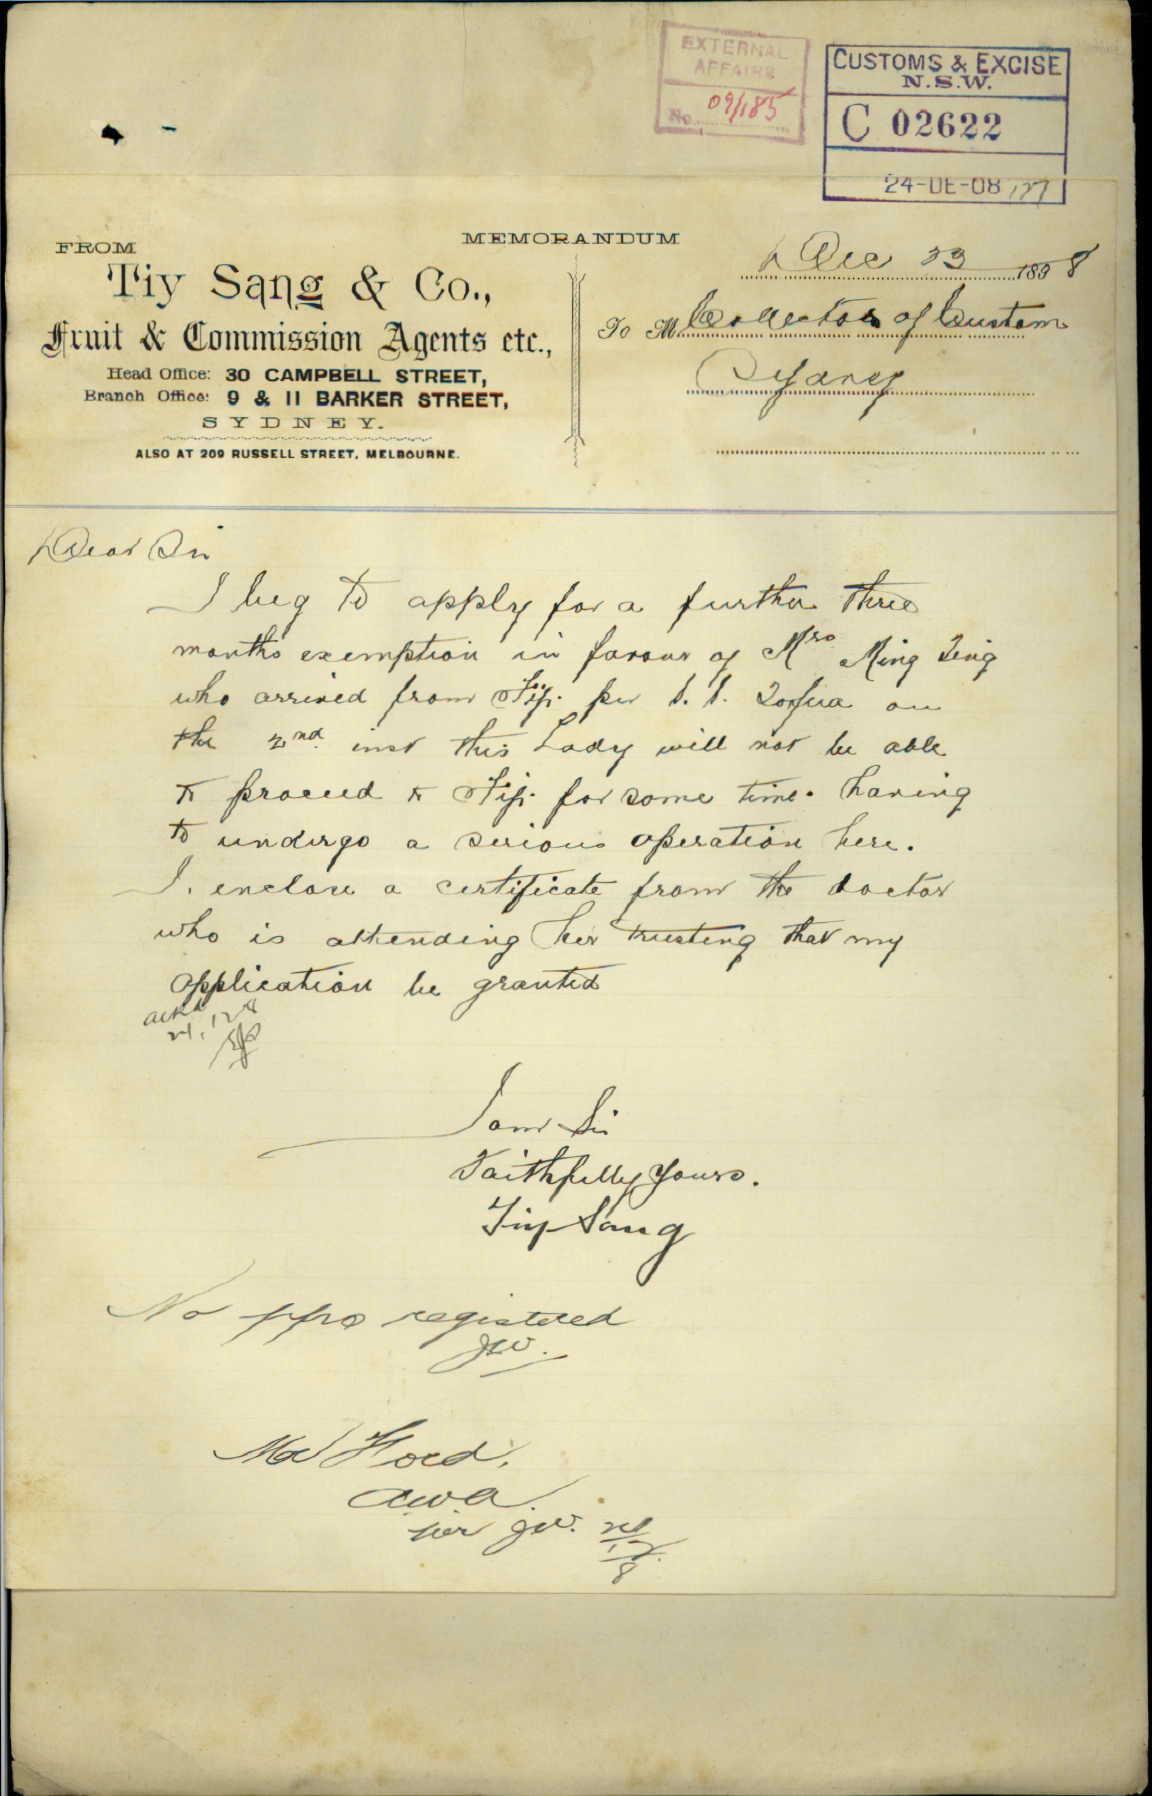 EXTERNAL
AFFAIRS
No. 09/185
CUSTOMS & EXCISE
N.S.W.
C 02622
24-DE-08
MEMORANDUM
FROM
Tiy Sang & Co.,
Fruit & Commission Agents etc.,
Head Office: 30 CAMPBELL STREET,
Branch Office: 9 & 11 BARKER STREET,
SYDNEY.
ALSO AT 209 RUSSELL STREET, MELBOURNE.
Dec 23 1898
To M Collector of Custom
Sydney
Dear Sir
I beg to apply for a further three
months exemption in favour of Mrs Ming
who arrived from Fiji per S.S. on
the 2nd inst this Lady will not be able
to proceed to Fiji for some time. having
to undergo a serious operation here.
I enclose a certificate from the doctor
who is attending her trusting that my
application be granted
24.12.8
I am Sir
Faithfully Yours.
Tiy Sang
No ppo registered
JW.
Mr
A.W.A.
per JW. 24/12/8